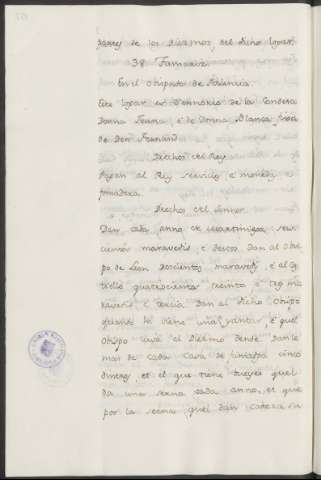 partes de los diezmos del dicho logar.
38 Tamariz
En el obispado de Palencia.
Este logar es Solariego de la Condesa
Donna Juana, è de Donna Blanca, fija
de Don Fernand.
Derechos del Rey.
Pagan al Rey servicio è moneda è
fonsadera.
Derechos del Sennor.
Dan cada anno de Martiniega seis-
cientos maravedis, è destos dan al Obis-
po de Leon doscientos maravedis, è al
quatrocientos treinta è tres ma-
ravedis è tercia dan al dicho Obispo
quando hi viene una yantar, è quel
Obispo lieva el diezmo dende danle
mas de cada casa de Infurcion cinco
dineros, et el que tiene bueyes quel
da una serna cada anno, et que
por la serna quel dan